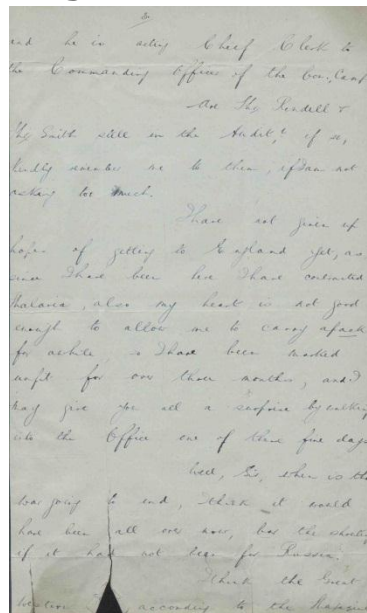 2
and he is acting Chief Clerk to
the Commanding Officer of the Con. Camp
Are Thy Rendell &
Thy Smith still in the Audit? if so,
kindly remember me to them, if I am not
asking too much.
I have not given up
hopes of getting to England yet, as
since I have been here I have contracted
Malaria, also my heart is not good
enough to allow me to carry a pack
for awhile, so I have been marked
unfit for over three months, and I
may give you all a surprise by walking
into the Office one of these fine days
Well, Sir, when is the
War going to end, think it would
have been all over now, bar the shouting
if it had not been for Russia.
Think the Great
according to the